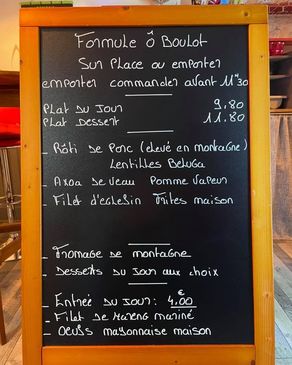 Formule ô Boulot
Sur Place ou emporter
emporter commander avant 11h30
Plat Du Jour 9,80
Plat Dessert 11.80
- Rôti de Porc (elevé en montagne)
Lentilles Beluga
- Axoa de veau Pomme vapeur
- Filet d'eglefin Frites maison
- Fromage de montagne
- Desserts du Jour aux choix
- Entrée du jour : 4,00 €
- Filet de Hareng mariné
- Oeufs mayonnaise maison